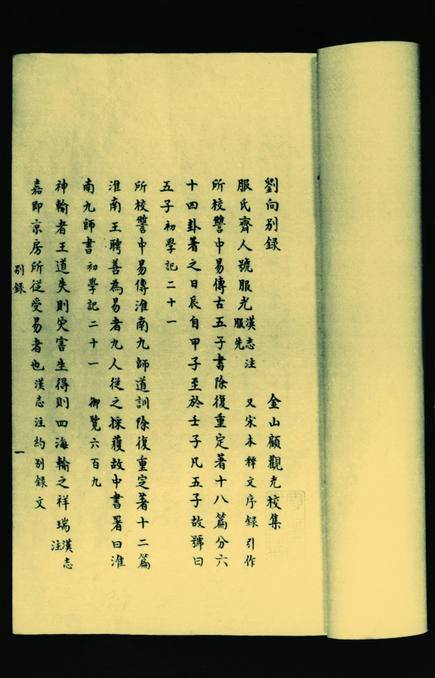 劉向別錄　金山顧觀光校集
服氏齊人號服光漢志注　又宋本釋文序錄引作服先
所校讐中易傳古五子書除復重定著十八篇分六
十四卦著之日辰自甲子至於壬子凡五子故號曰
五子初學記二十一
所校讐中易傳淮南九師道訓除復重定著十二篇
淮南王聘善為易者九人從之採獲故中書署曰淮
南九師書初學記二十一　御覽六百九
神輸者王道失則災害生得則四海輸之祥瑞漢志注
嘉即京房所從受易者也漢志注約別錄文
別錄　一